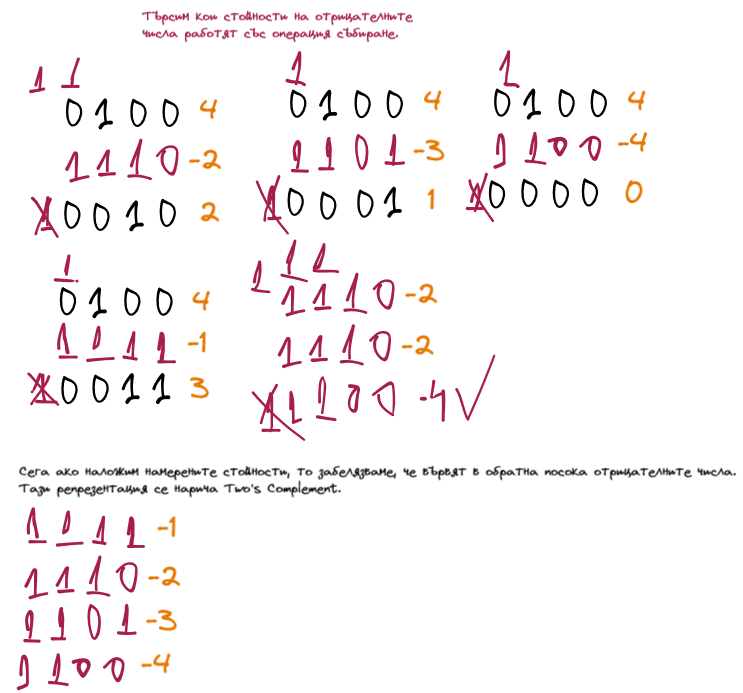 Търсим кои стойности на отрицателните
числа работят със операция събиране.
1 1
0 1 0 0 4
1 1 1 0 -2
1 0 0 1 0 2
1
0 1 0 0 4
1 1 0 1 -3
1 0 0 0 1 1
1
0 1 0 0 4
1 1 0 0 -4
1 0 0 0 0 0
1
0 1 0 0 4
1 1 1 1 -1
1 0 0 1 1 3
1 1 1
1 1 1 0 -2
1 1 1 0 -2
1 1 1 0 0 -4 ✓
Сега ако наложим намерените стойности, то забелязваме, че вървят в обратна посока отрицателните числа.
Тази репрезентация се нарича Two's Complement.
1 1 1 1 -1
1 1 1 0 -2
1 1 0 1 -3
1 1 0 0 -4